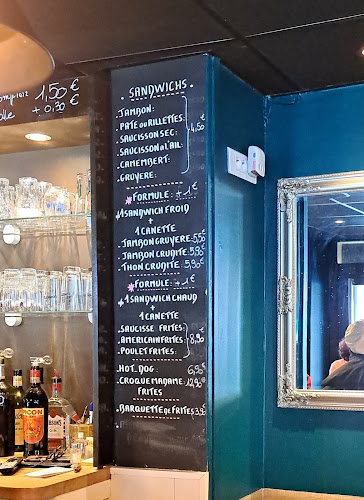 1,50€
+ 0,30€
. SANDWICHS .
.JAMBON:
.PATE OU RILLETTES:
.SAUCISSON SEC:
4,50€
.SAUCISSON A L'AIL:
.CAMEMBERT:
.GRUYERE:
*FORMULE: +1€
*1 SANDWICH FROID
+
1 CANETTE
JAMBON GRUYERE: 5,50
JAMBON CRUDITE: 5,90€
THON CRUDITE: 5,90€
*FORMULE: +1€
*1 SANDWICH CHAUD
+
1 CANETTE
.SAUCISSE FRITES:
.AMERICAIN FRITES: 8,90€
.POULET FRITES:
.HOT DOG: 6,90€
.CROQUE MADAME: 12,90€
FRITES
.BARQUETTE DE FRITES 3,9
PICON